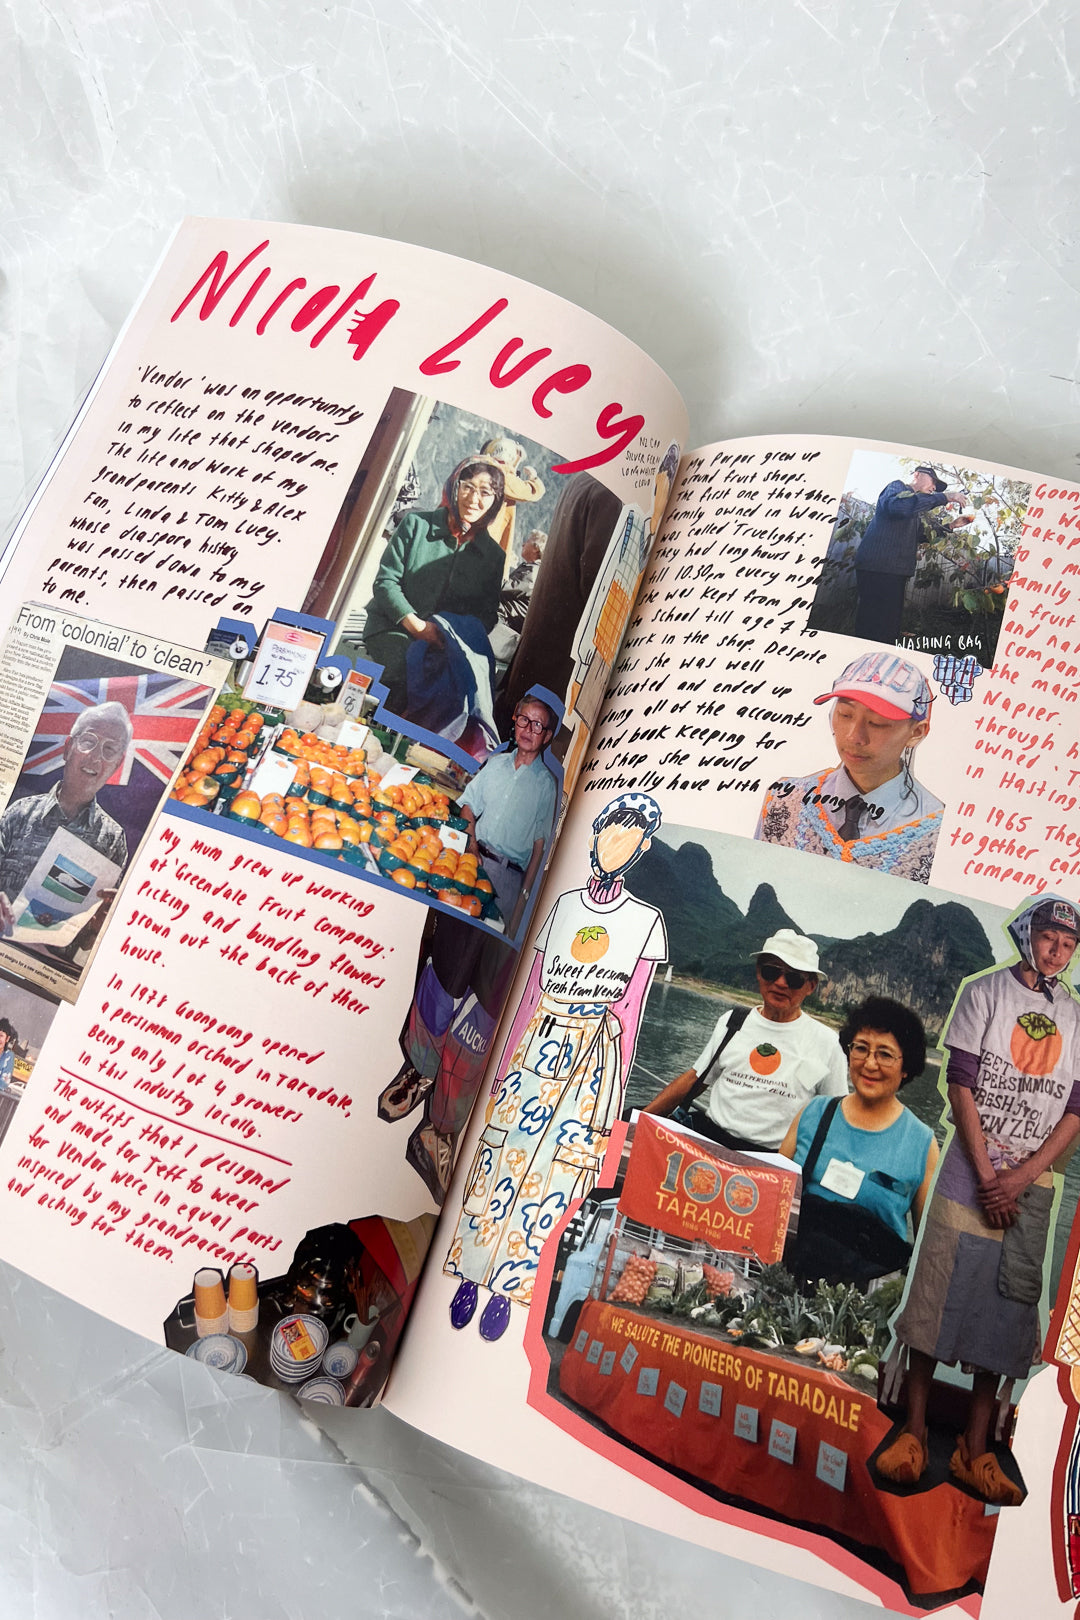 Nicola Luey
'Vendor' was an opportunity
to reflect on the vendors
in my life that shaped me.
The life and work of my
grandparents Kitty & Alex
Fan, Linda & Tom Luey.
whose diaspora history
was passed down to my
parents, then passed on
to me.
From 'colonial' to 'clean'
By Chris Moor
PERSIMMONS
1.75
My mum grew up working
at 'Greendale Fruit Company'.
Picking and bundling flowers
grown out the back of their
house.
In 1978 Goong oong opened
a persimmon orchard in Taradale,
Being only 1 of 4 growers
in this industry locally.
The outfits that I designed
and made for Jeff to wear
for Vendor were in equal parts
inspired by my grandparents,
and aching for them.
AUCKL
NZ CAP
SILVER FERN
LONG WHITE
CLOUD
My Porpor grew up
around fruit shops.
The first one that her
family owned in Wairo
was called 'Truelight'.
They had long hours & open
till 10.30pm every night
she was kept from going
to school till age 7 to
work in the shop. Despite
this she was well
educated and ended up
doing all of the accounts
and book keeping for
the shop she would
eventually have with my Goong gong
WASHING BAG
Goong
in Wa
Takap
to a m
family
a fruit
and nam
compan
the main
Napier.
through h
owned 'T
in Hasting
in 1965 They
together call
company'
Sweet Persimmo
Fresh from New Ze
SWEET PERSIMMONS
FRESH from NEW ZEALAND
SWEET
PERSIMMONS
FRESH from
NEW ZEALA
CONGRATULATIONS
100
TARADALE
1886 - 1986
WE SALUTE THE PIONEERS OF TARADALE